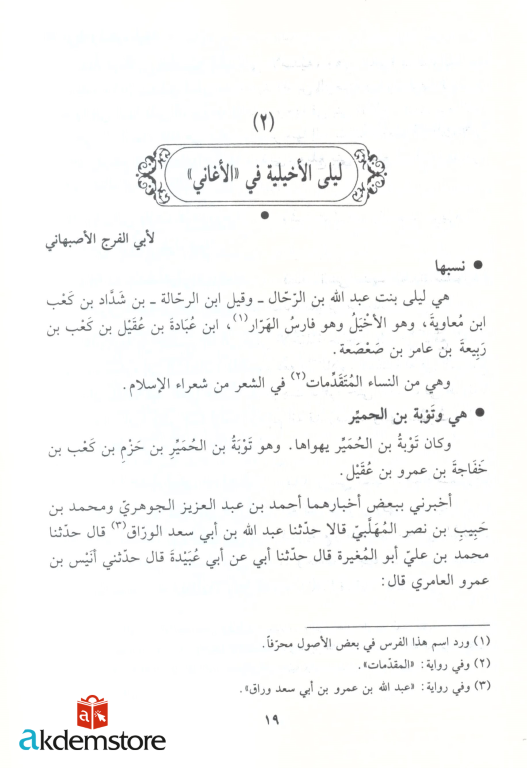 (٢)
ليلى الأخيلية في «الأغاني»
لأبي الفرج الأصبهاني
● نسبها
هي ليلى بنت عبد الله بن الرّحّال ـ وقيل ابن الرحّالة ـ بن شَدَّاد بن كَعْب
ابن مُعاويةَ، وهو الأخْيَلُ وهو فارسُ الهَرّار(١)، ابن عُبَادَة بن عُقَيْل بن كَعْب بن
رَبِيعةَ بن عامر بن صَعْصَعة.
وهي من النساء المُتَقَدِّمات(٢) في الشعر من شعراء الإسلام.
● هي وتَوْبة بن الحميّر
وكان تَوْبةُ بن الحُمَيِّر يهواها. وهو تَوْبَةُ بن الحُمَيِّرِ بن حَزْم بن كَعْب بن
خَفَاجةَ بن عمرو بن عُقَيْل.
أخبرني ببعض أخبارهما أحمد بن عبد العزيز الجوهريّ ومحمد بن
حَبِيبِ بن نصر المُهَلَّبيّ قالا حدّثنا عبد الله بن أبي سعد الورّاق(٣) قال حدّثنا
محمد بن عليّ أبو المُغيرة قال حدّثنا أبي عن أبي عُبَيْدةَ قال حدّثني أُنَيْس بن
عمرو العامري قال:
(١) ورد اسم هذا الفرس في بعض الأصول محرّفاً.
(٢) وفي رواية: «المقدّمات».
(٣) وفي رواية: «عبد الله بن عمرو بن أبي سعد وراق».
١٩
akdemstore